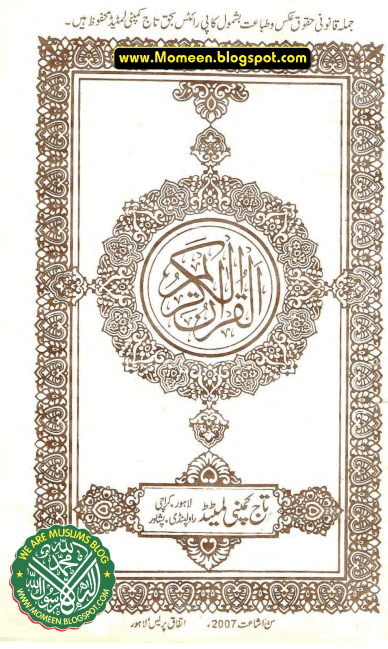 جملہ قانونی حقوق عکس و طباعت بشمول کاپی رائٹس بحق تاج کمپنی لمیٹڈ محفوظ ہیں۔
www.Momeen.blogspot.com
القرآن الكريم
تاج کمپنی لمیٹڈ لاہور۔ کراچی
راولپنڈی۔ پشاور
WE ARE MUSLIMS BLOG
لا إله إلا الله محمد رسول الله
WWW.MOMEEN.BLOGSPOT.COM
سن اشاعت 2007ء اتفاق پریس لاہور